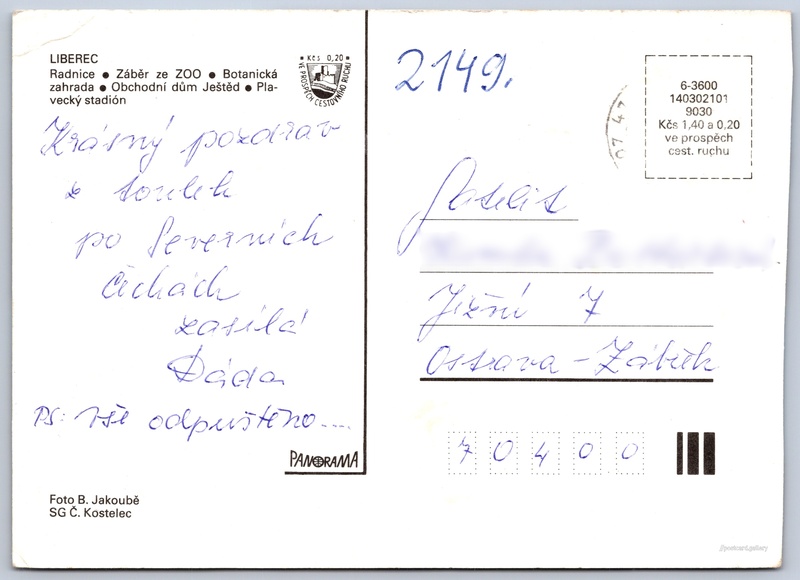 LIBEREC
Radnice ● Záběr ze ZOO ● Botanická
zahrada ● Obchodní dům Ještěd ● Pla-
vecký stadión
Kčs 0,20
VE PROSPĚCH CESTOVNÍHO RUCHU
Krásný pozdrav
z toulek
po Severních
Čechách
zasílá
Dáda
PS: Vše odpuštěno....
PANORAMA
Foto B. Jakoubě
SG Č. Kostelec
2149.
07.47
6-3600
140302101
9030
Kčs 1,40 a 0,20
ve prospěch
cest. ruchu
Jižní 7
Ostrava - Zábřeh
70400
postcard.gallery